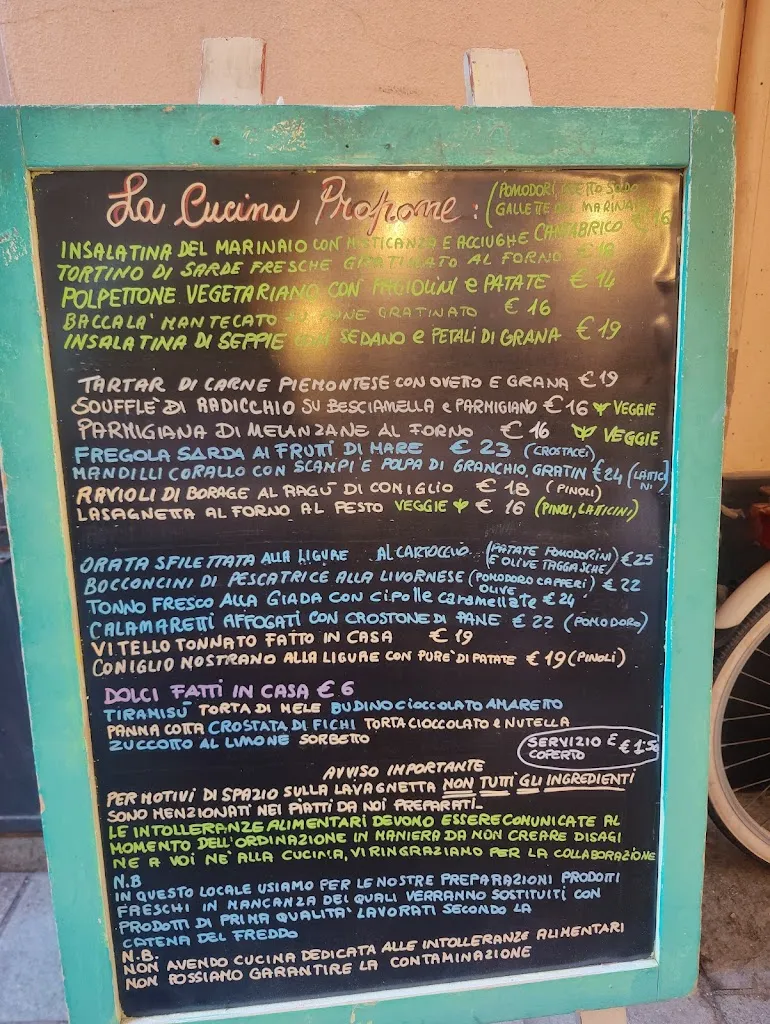 La Cucina Propone: (POMODORI, SODO
GALLETTE DEL MARINAIO
INSALATINA DEL MARINAIO CON MISTICANZA E ACCIUGHE CANTABRICO € 16
TORTINO DI SARDE FRESCHE GRATINATO AL FORNO € 18
POLPETTONE VEGETARIANO CON FAGIOLINI e PATATE € 14
BACCALA' MANTECATO PANE GRATINATO € 16
INSALATINA DI SEPPIE CON SEDANO e PETALI DI GRANA € 19
TARTAR DI CARNE PIEMONTESE CON OVETTO E GRANA € 19
SOUFFLÈ DI RADICCHIO SU BESCIAMELLA e PARMIGIANO € 16 VEGGIE
PARMIGIANA DI MELANZANE AL FORNO € 16 VEGGIE
FREGOLA SARDA AI FRUTTI DI MARE € 23 (CROSTACEI)
MANDILLI CORALLO CON SCAMPI E POLPA DI GRANCHIO, GRATIN € 24 (LATTICINI)
RAVIOLI DI BORAGE AL RAGÙ DI CONIGLIO € 18 (PINOLI)
LASAGNETTA AL FORNO AL PESTO VEGGIE € 16 (PINOLI, LATTICINI)
ORATA SFILETTATA ALLA LIGURE AL CARTOCCIO (PATATE POMODORINI E OLIVE TAGGIASCHE) € 25
BOCCONCINI DI PESCATRICE ALLA LIVORNESE (POMODORO CAPPERI OLIVE) € 22
TONNO FRESCO ALLA GIADA CON CIPOLLE CARAMELLATE € 24
CALAMARETTI AFFOGATI CON CROSTONE DI PANE € 22 (POMODORO)
VITELLO TONNATO FATTO IN CASA € 19
CONIGLIO NOSTRANO ALLA LIGURE CON PURE' DI PATATE € 19 (PINOLI)
DOLCI FATTI IN CASA € 6
TIRAMISÙ TORTA DI MELE BUDINO CIOCCOLATO AMARETTO
PANNA COTTA CROSTATA DI FICHI TORTA CIOCCOLATO e NUTELLA
ZUCCOTTO AL LIMONE SORBETTO
SERVIZIO E COPERTO € 1.50
AVVISO IMPORTANTE
PER MOTIVI DI SPAZIO SULLA LAVAGNETTA NON TUTTI GLI INGREDIENTI
SONO MENZIONATI NEI PIATTI DA NOI PREPARATI_
LE INTOLLERANZE ALIMENTARI DEVONO ESSERE COMUNICATE AL
MOMENTO DELL'ORDINAZIONE IN MANIERA DA NON CREARE DISAGI
NE A VOI NE' ALLA CUCINA, VI RINGRAZIANO PER LA COLLABORAZIONE
N.B
IN QUESTO LOCALE USIAMO PER LE NOSTRE PREPARAZIONI PRODOTTI
FRESCHI IN MANCANZA DEI QUALI VERRANNO SOSTITUITI CON
PRODOTTI DI PRIMA QUALITA' LAVORATI SECONDO LA
CATENA DEL FREDDO
N.B.
NON AVENDO CUCINA DEDICATA ALLE INTOLLERANZE ALIMENTARI
NON POSSIAMO GARANTIRE LA CONTAMINAZIONE